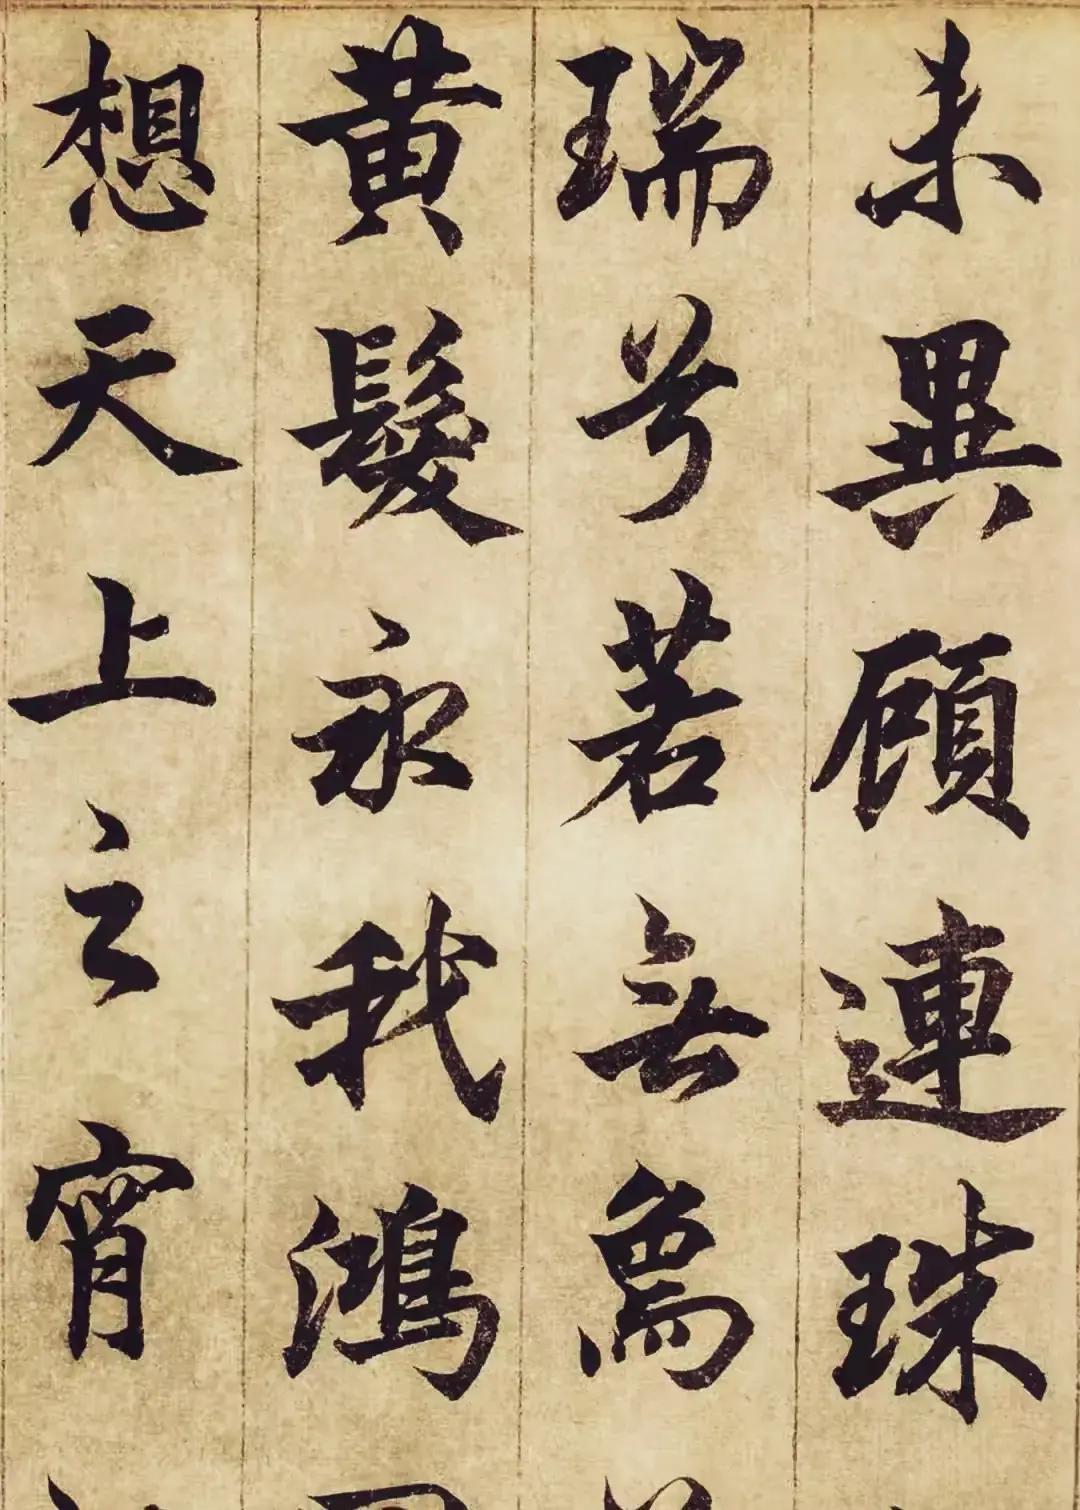 未異顧連珠
瑞兮若無為
黄髮永我鴻
想天上之宵